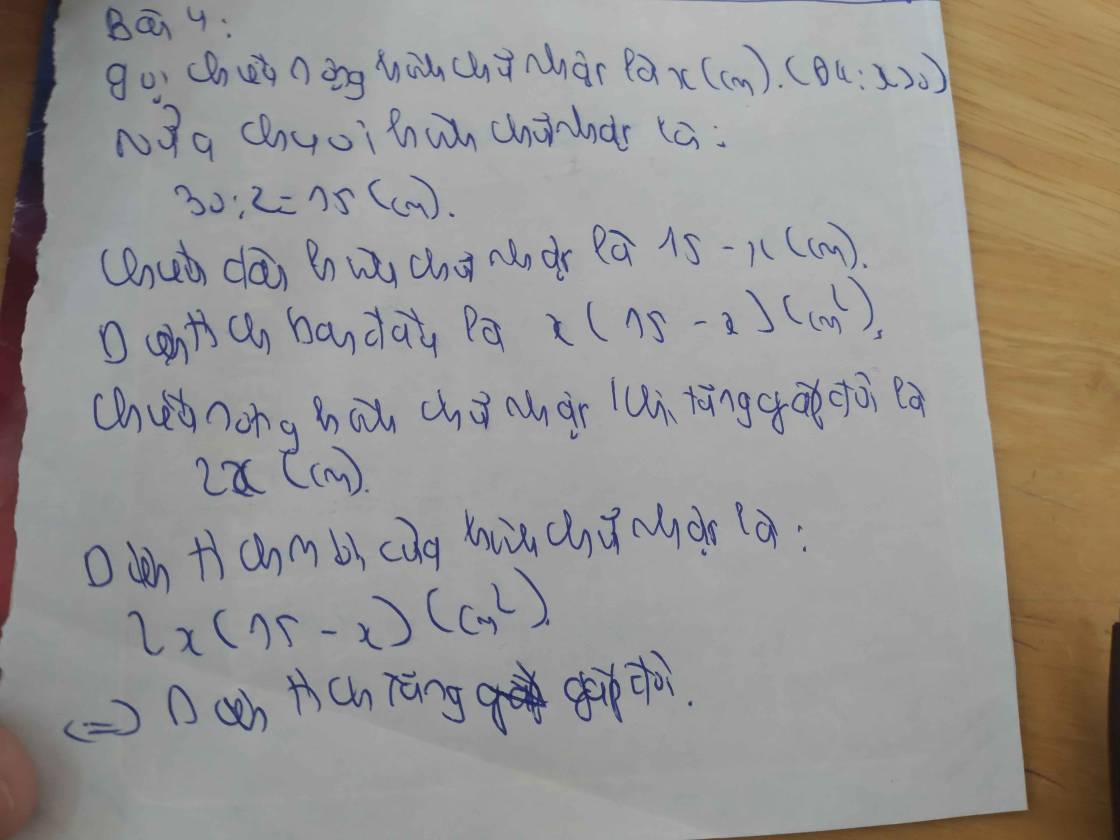 Bài 4:
gọi chiều rộng hình chữ nhật là x (cm). (ĐK: x>0)
Nửa chu vi hình chữ nhật là:
30:2=15 (cm).
Chiều dài hình chữ nhật là 15 - x (cm).
Diện tích ban đầu là x(15 - x) (cm²).
Chiều rộng hình chữ nhật khi tăng gấp đôi là
2x (cm).
Diện tích mới của hình chữ nhật là:
2x(15 - x) (cm²).
<=> Diện tích tăng gấp đôi.